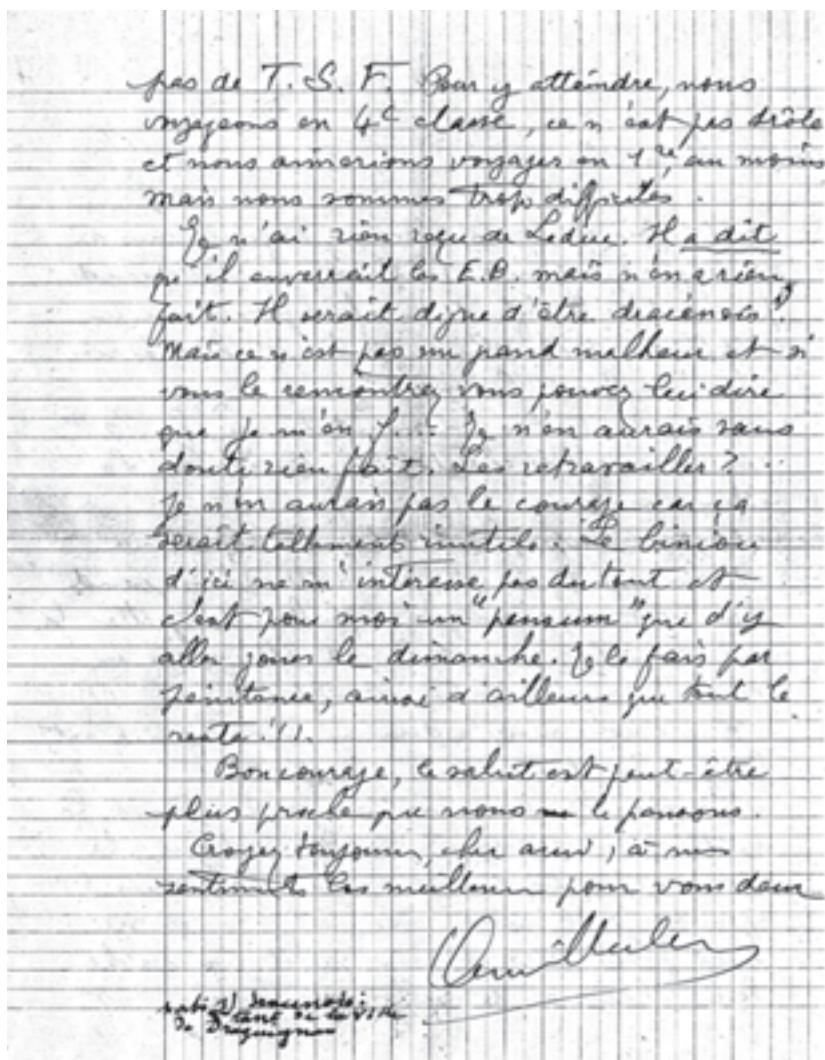 pas de T. S. F. Pour y atteindre, nous
voyageons en 4e classe, ce n'est pas drôle
et nous aimerions voyager en 1re au moins
mais nous sommes trop difficiles.
Je n'ai rien reçu de Leduc. Il a dit
qu'il enverrait les E.B. mais n'en a rien
fait. Il serait digne d'être dracénois 1)
Mais ce n'est pas un grand malheur et si
vous le rencontrez vous pouvez lui dire
que je m'en f... Je n'en aurais sans
doute rien fait. Les retravailler ?
Je n'en aurais pas le courage car ça
serait tellement inutile. Le biniou
d'ici ne m'intéresse pas du tout et
c'est pour moi un "pensum" que d'y
aller jouer le dimanche. Je le fais par
pénitence, ainsi d'ailleurs que tout le
reste !!!
Bon courage, le salut est peut-être
plus proche que nous le pensons.
Croyez toujours, cher ami, à mes
sentiments les meilleurs pour vous deux
1) dracénois :
de la ville
de Draguignan